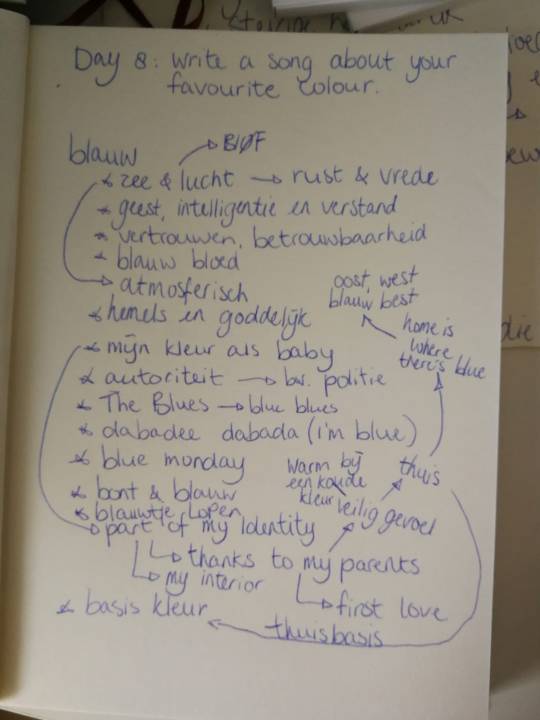 Day 8: write a song about your
favourite colour.
blauw
→ BLØF
* zee & lucht → rust & vrede
* geest, intelligentie en verstand
* vertrouwen, betrouwbaarheid
* blauw bloed
→ atmosferisch
oost, west
blauw best
* hemels en goddelijk
home is
where
there's blue
* mijn kleur als baby
* autoriteit → bv. politie
* The Blues → blue blues
* dabadee dabada (i'm blue)
* blue monday
warm bij
een koude
kleur
thuis
* bont & blauw
* blauwtje lopen
veilig gevoel
→ part of my Identity
→ thanks to my parents
→ my interior
→ first love
* basis kleur
thuisbasis
die